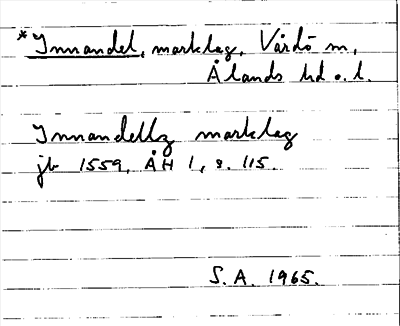 *Innandel, marklag, Vårdö sn,
Ålands hd o. l.
Innandellz marklag
jb 1559, ÅH 1, s. 115.
S. A. 1965.